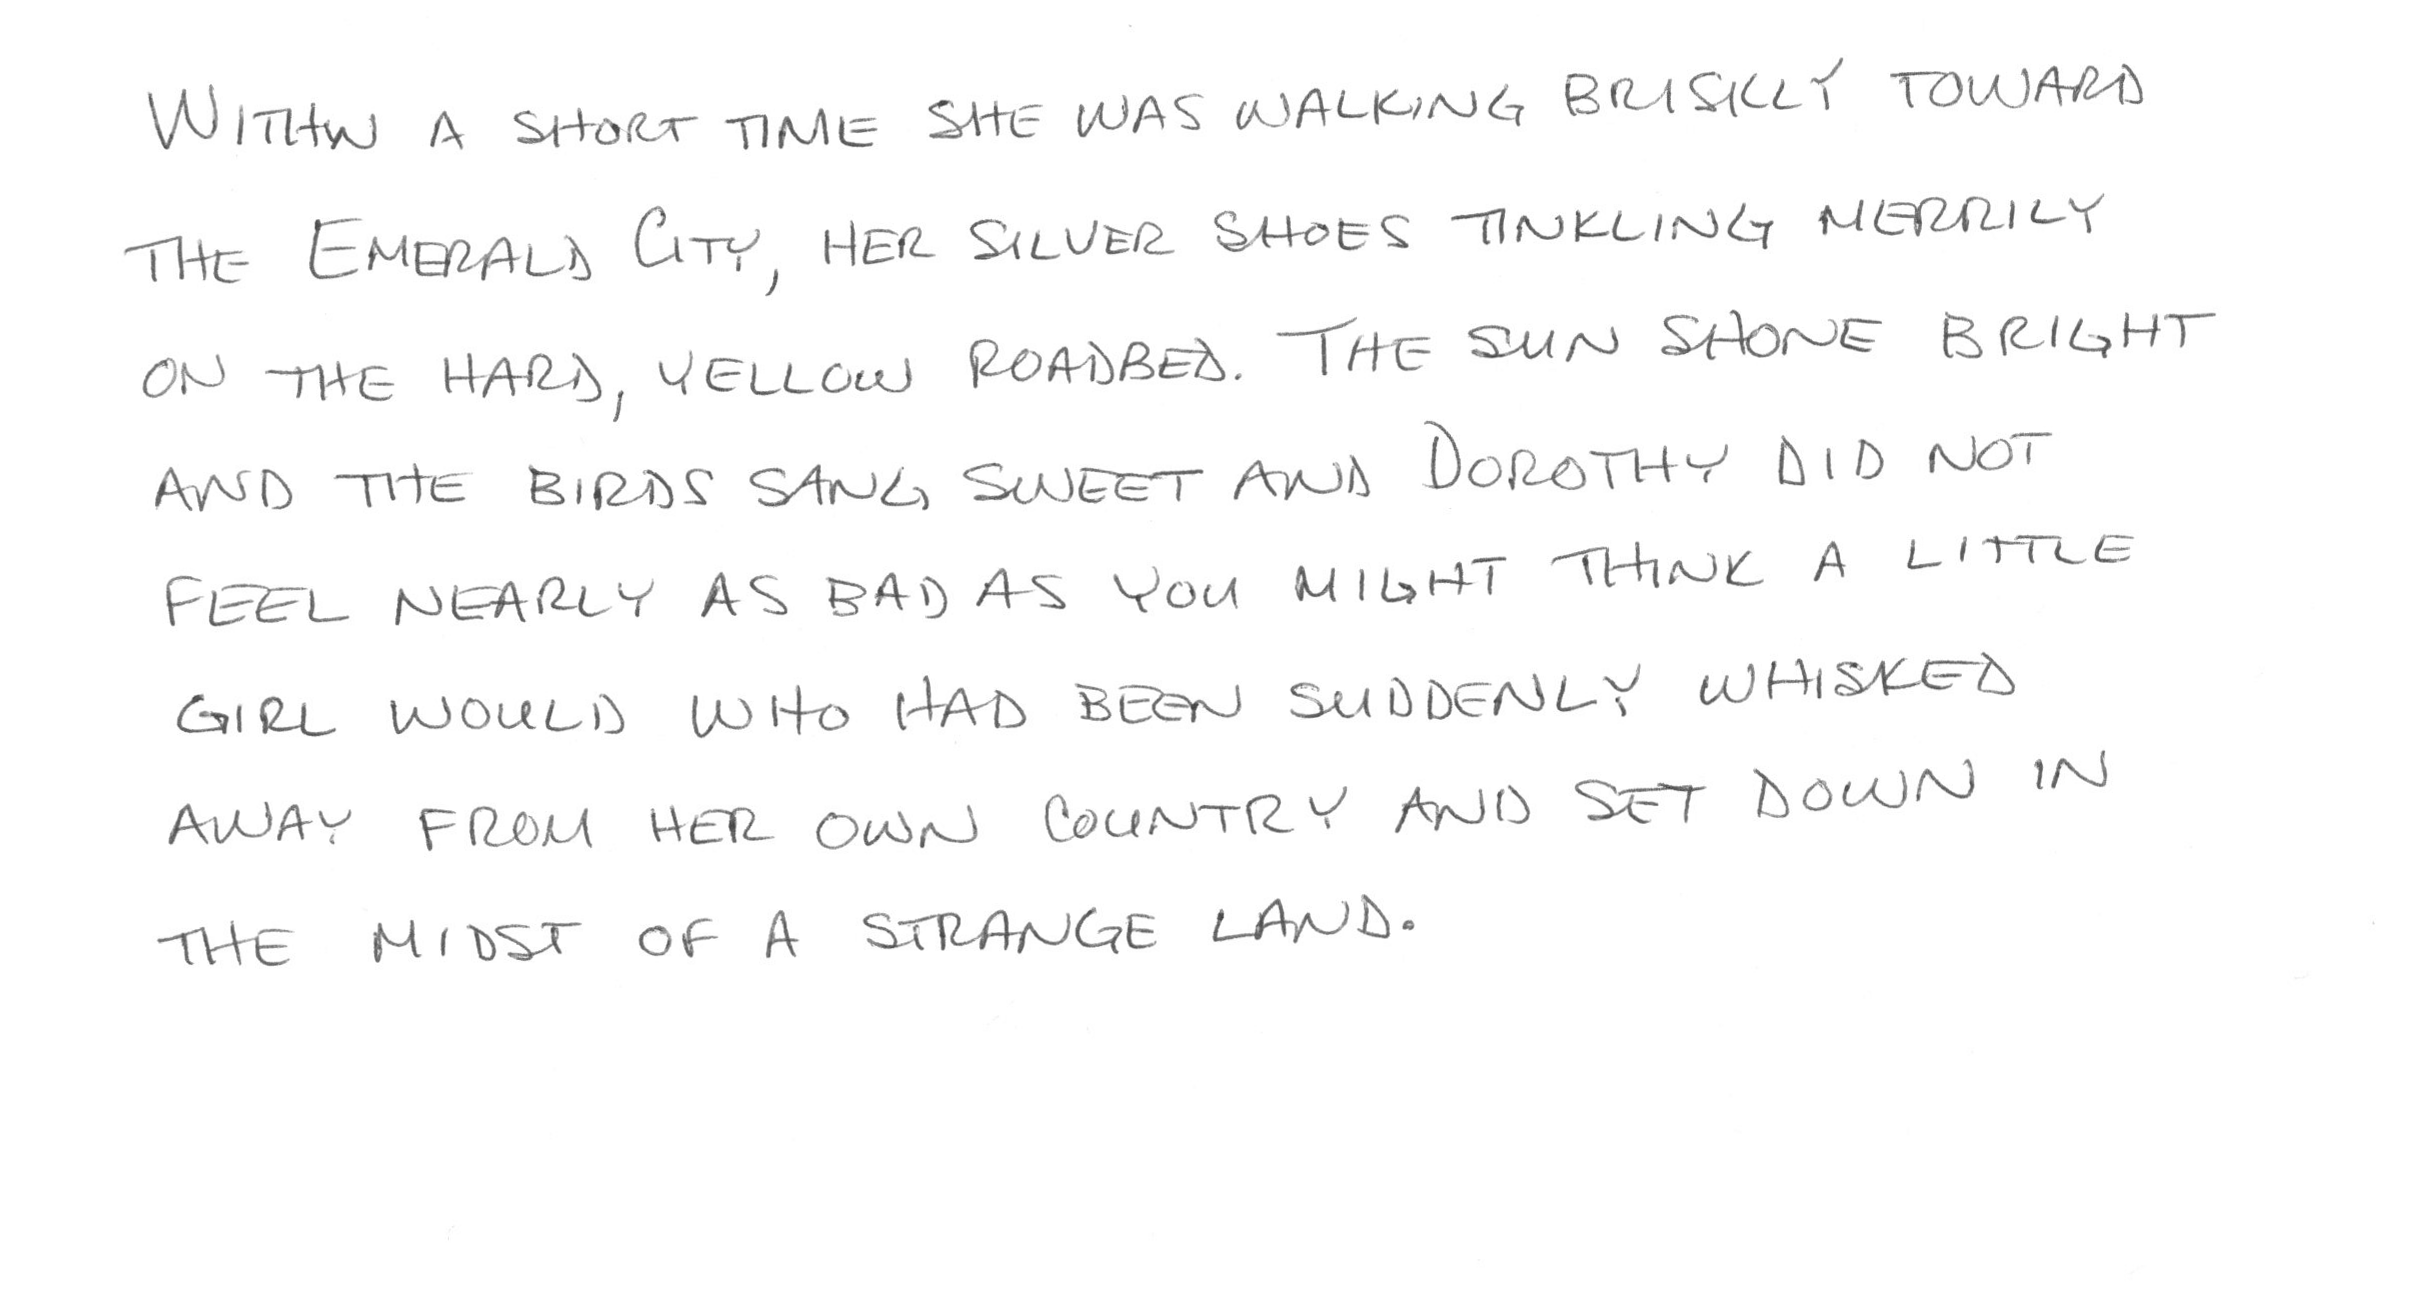 WITHIN A SHORT TIME SHE WAS WALKING BRISKLY TOWARD
THE EMERALD CITY, HER SILVER SHOES TINKLING MERRILY
ON THE HARD, YELLOW ROADBED. THE SUN SHONE BRIGHT
AND THE BIRDS SANG SWEET AND DOROTHY DID NOT
FEEL NEARLY AS BAD AS YOU MIGHT THINK A LITTLE
GIRL WOULD WHO HAD BEEN SUDDENLY WHISKED
AWAY FROM HER OWN COUNTRY AND SET DOWN IN
THE MIDST OF A STRANGE LAND.